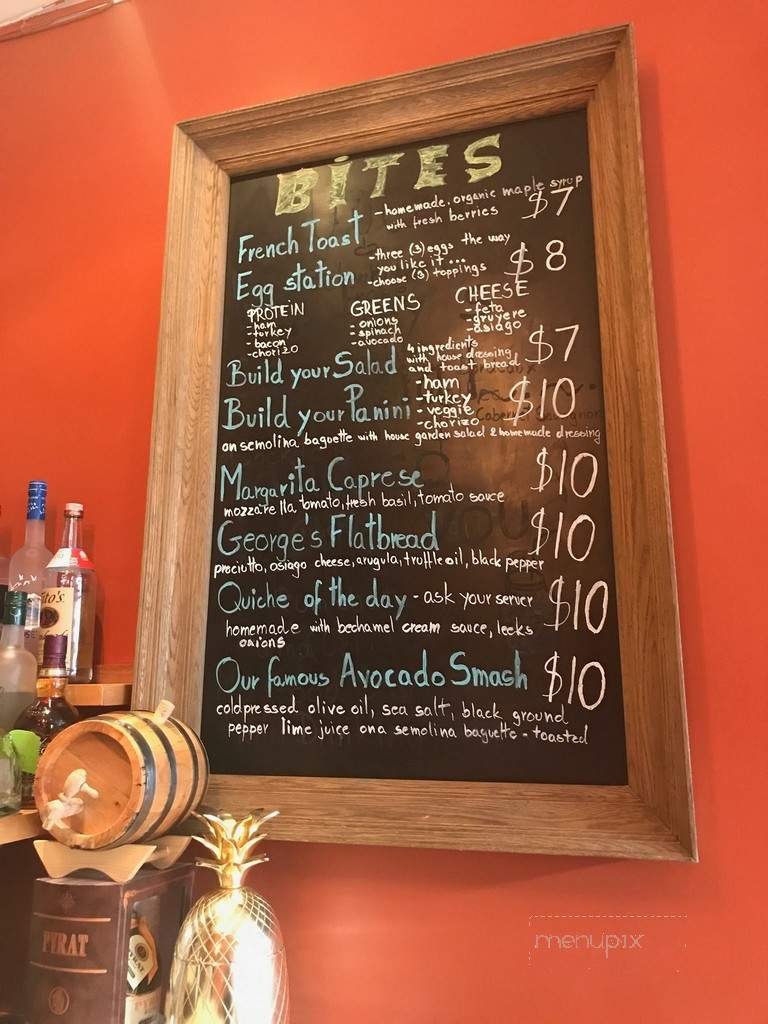 BITES
French Toast - homemade, organic maple syrup $7
with fresh berries
Egg station - three (3) eggs the way $8
you like it ...
- choose (3) toppings
PROTEIN
- ham
- turkey
- bacon
- chorizo
GREENS
- onions
- spinach
- avocado
CHEESE
- feta
- gruyere
- asiago
Build your Salad 4 ingredients $7
with house dressing
and toast bread
Build your Panini - ham $10
- turkey
- veggie
- chorizo
on semolina baguette with house garden salad & homemade dressing
Margarita Caprese $10
mozzarella, tomato, fresh basil, tomato sauce
George's Flatbread $10
prociutto, asiago cheese, arugula, truffle oil, black pepper
Quiche of the day - ask your server $10
homemade with bechamel cream sauce, leeks
onions
Our famous Avocado Smash $10
coldpressed olive oil, sea salt, black ground
pepper lime juice on a semolina baguette - toasted
PYRAT
menupix